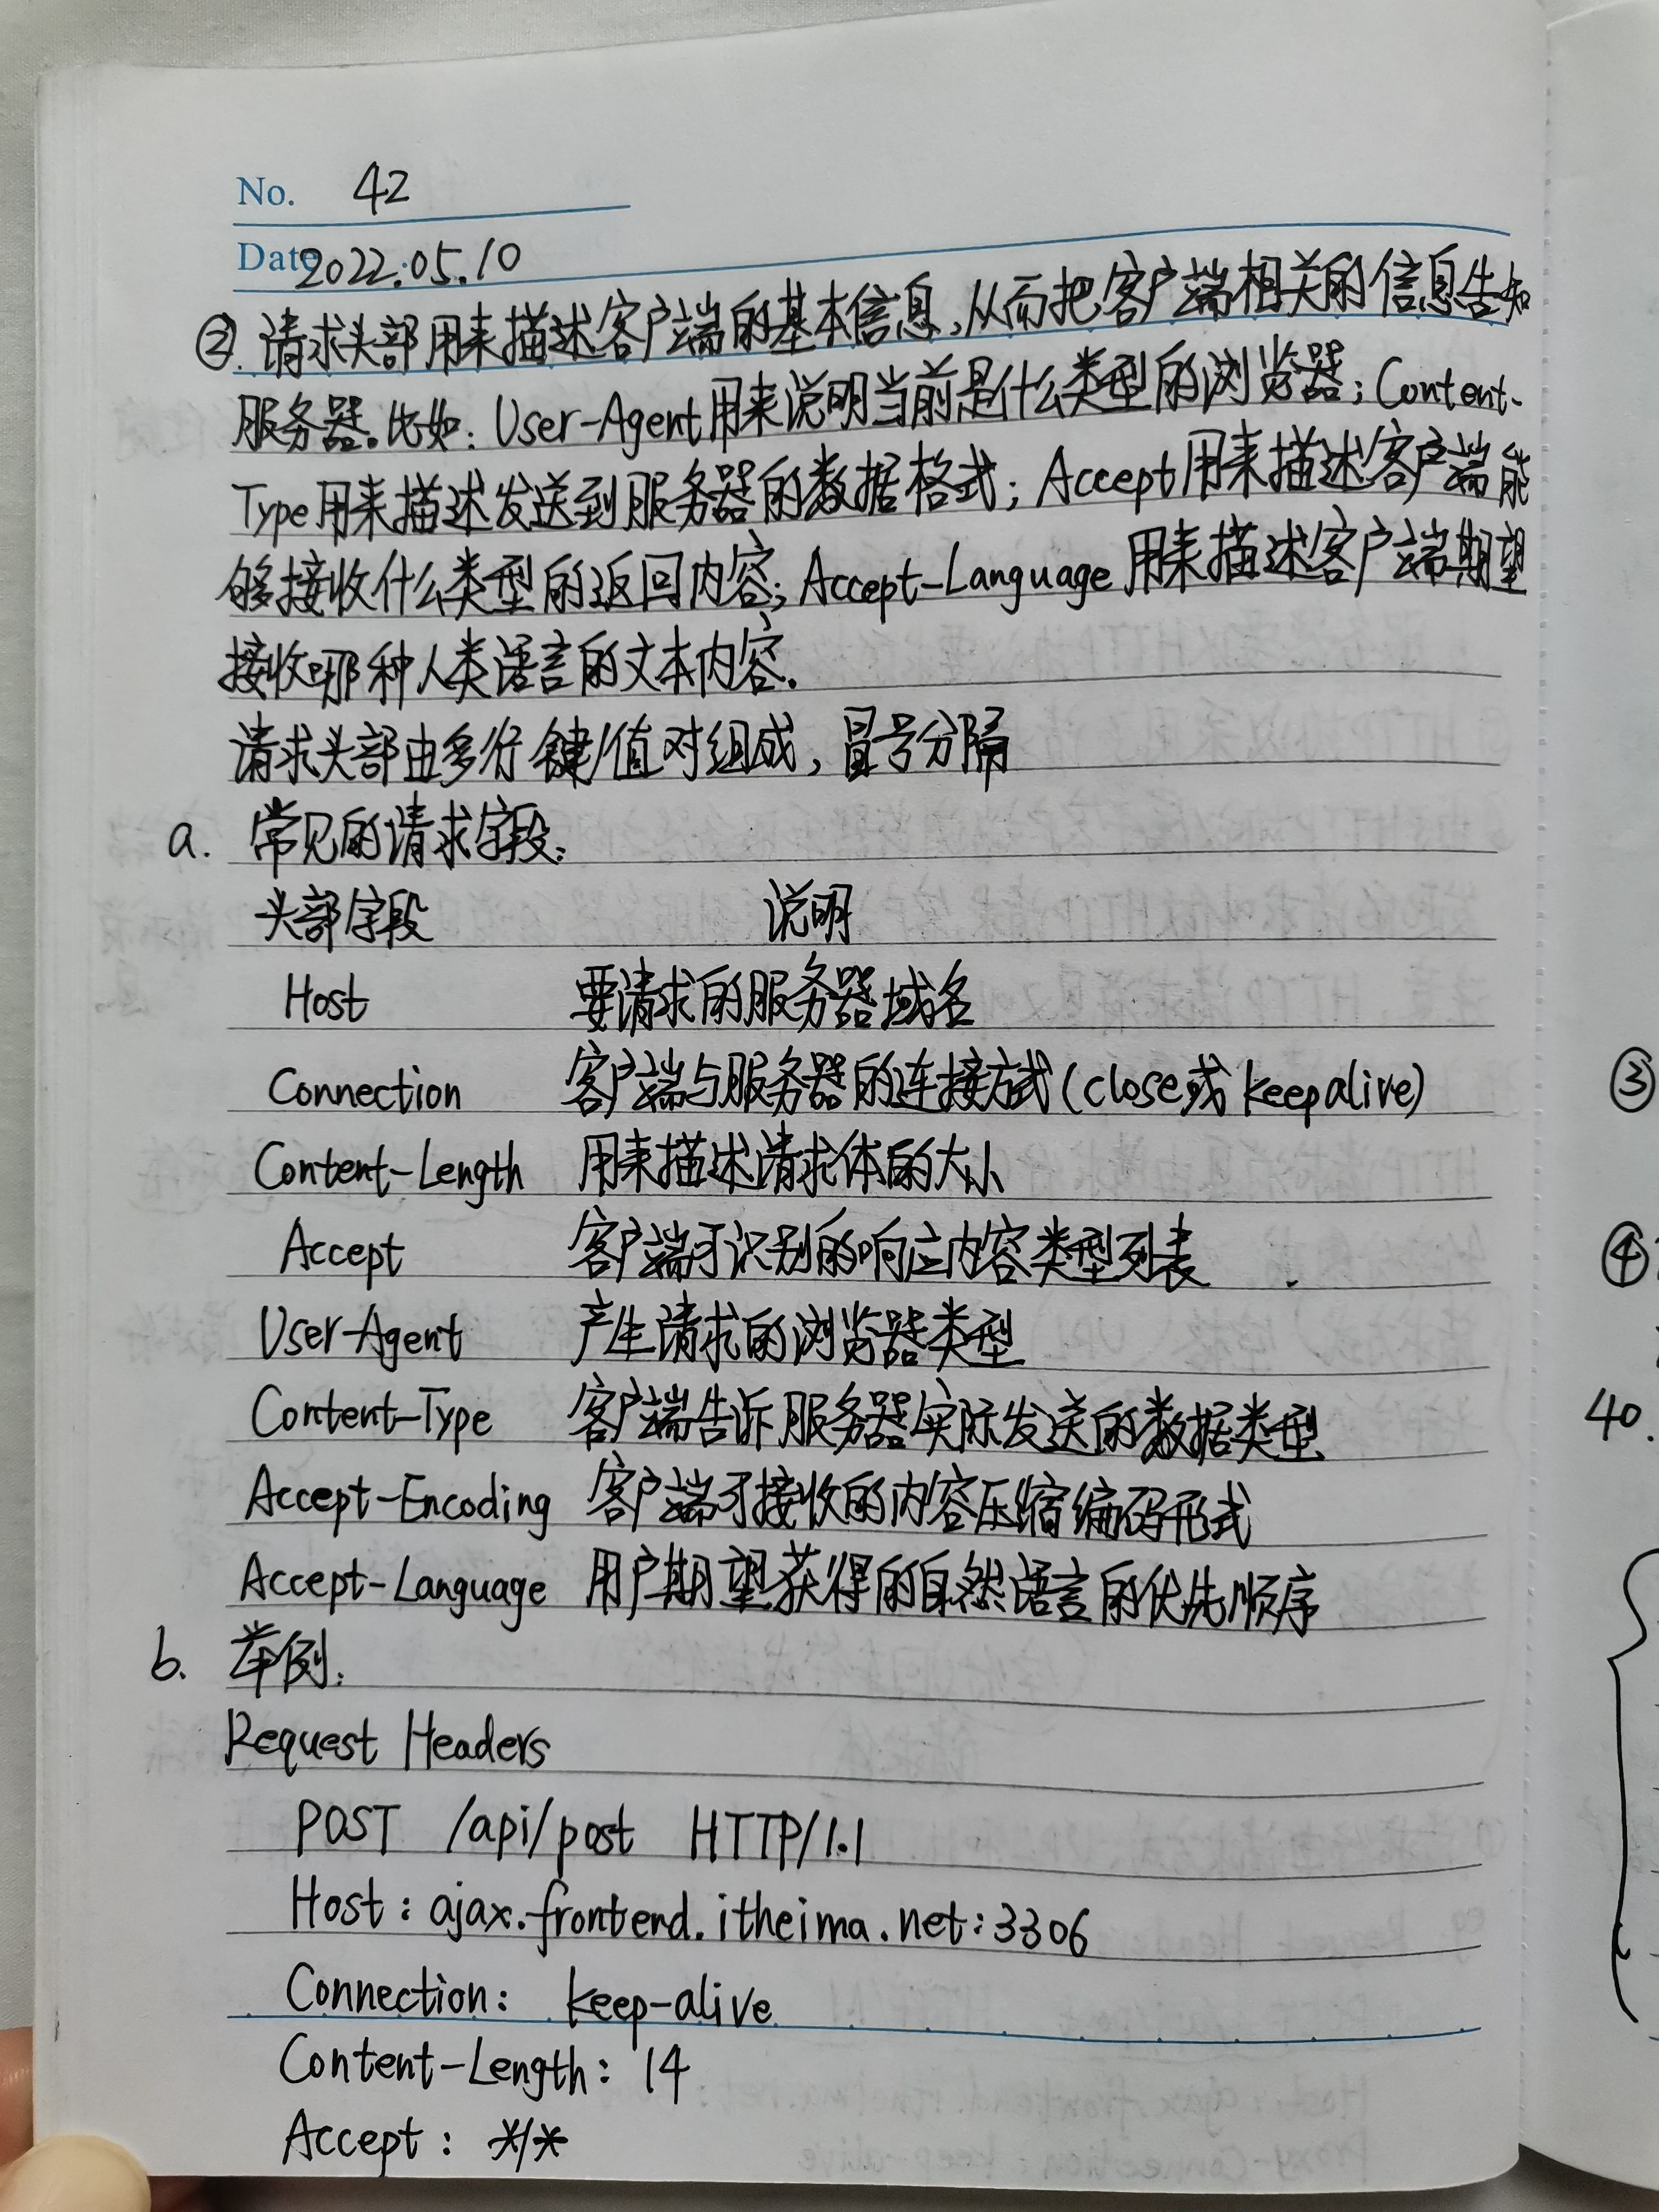 No. 42
Date 2022.05.10
②. 请求头部用来描述客户端的基本信息,从而把客户端相关的信息告知
服务器。比如: User-Agent用来说明当前是什么类型的浏览器; Content-
Type用来描述发送到服务器的数据格式; Accept用来描述客户端能
够接收什么类型的返回内容; Accept-Language 用来描述客户端期望
接收哪种人类语言的文本内容.
请求头部由多行 键/值对组成, 冒号分隔
a. 常见的请求字段:
头部字段 说明
Host 要请求的服务器域名
Connection 客户端与服务器的连接方式(close或 keepalive)
Content-Length 用来描述请求体的大小
Accept 客户端可识别的响应内容类型列表
User-Agent 产生请求的浏览器类型
Content-Type 客户端告诉服务器实际发送的数据类型
Accept-Encoding 客户端可接收的内容压缩编码形式
Accept-Language 用户期望获得的自然语言的优先顺序
b. 举例:
Request Headers
POST /api/post HTTP/1.1
Host: ajax.frontend.itheima.net:3306
Connection: keep-alive
Content-Length: 14
Accept: */*
③
④
40.